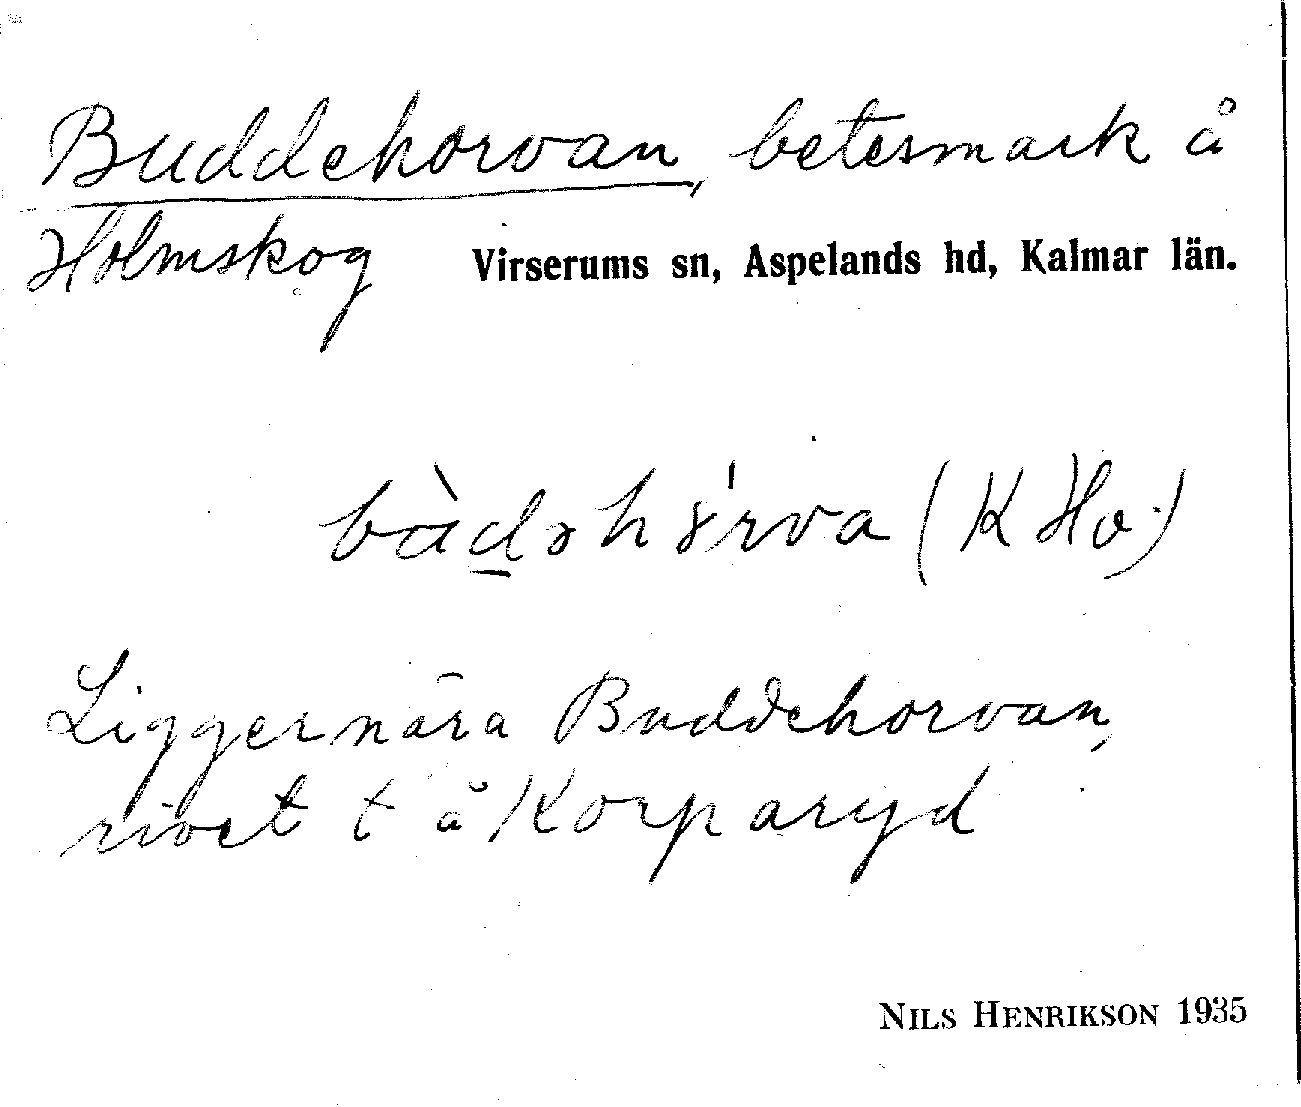 Buddehorvan, betesmark å
Holmskog Virserums sn, Aspelands hd, Kalmar län.
(K Hv.)
Ligger nära Buddehorvan,
t å Korparyd
NILS HENRIKSON 1935